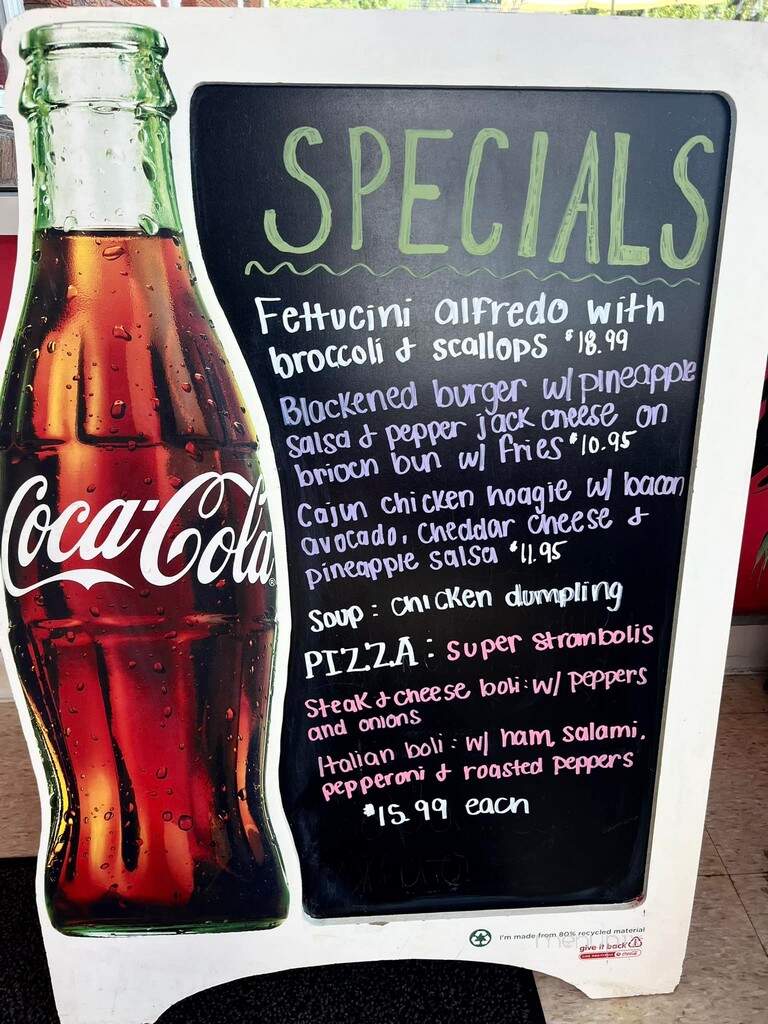 SPECIALS
Fettucini alfredo with
broccoli & scallops $18.99
Blackened burger w/ pineapple
salsa & pepper jack cheese on
brioch bun w/ fries $10.95
Cajun chicken hoagie w/ bacon
avocado, cheddar cheese &
pineapple salsa $11.95
Soup: chicken dumpling
PIZZA: super strombolis
Steak & cheese boli: w/ peppers
and onions
Italian boli: w/ ham, salami,
pepperoni & roasted peppers
$15.99 each
Coca-Cola®
I'm made from 80% recycled material
give it back